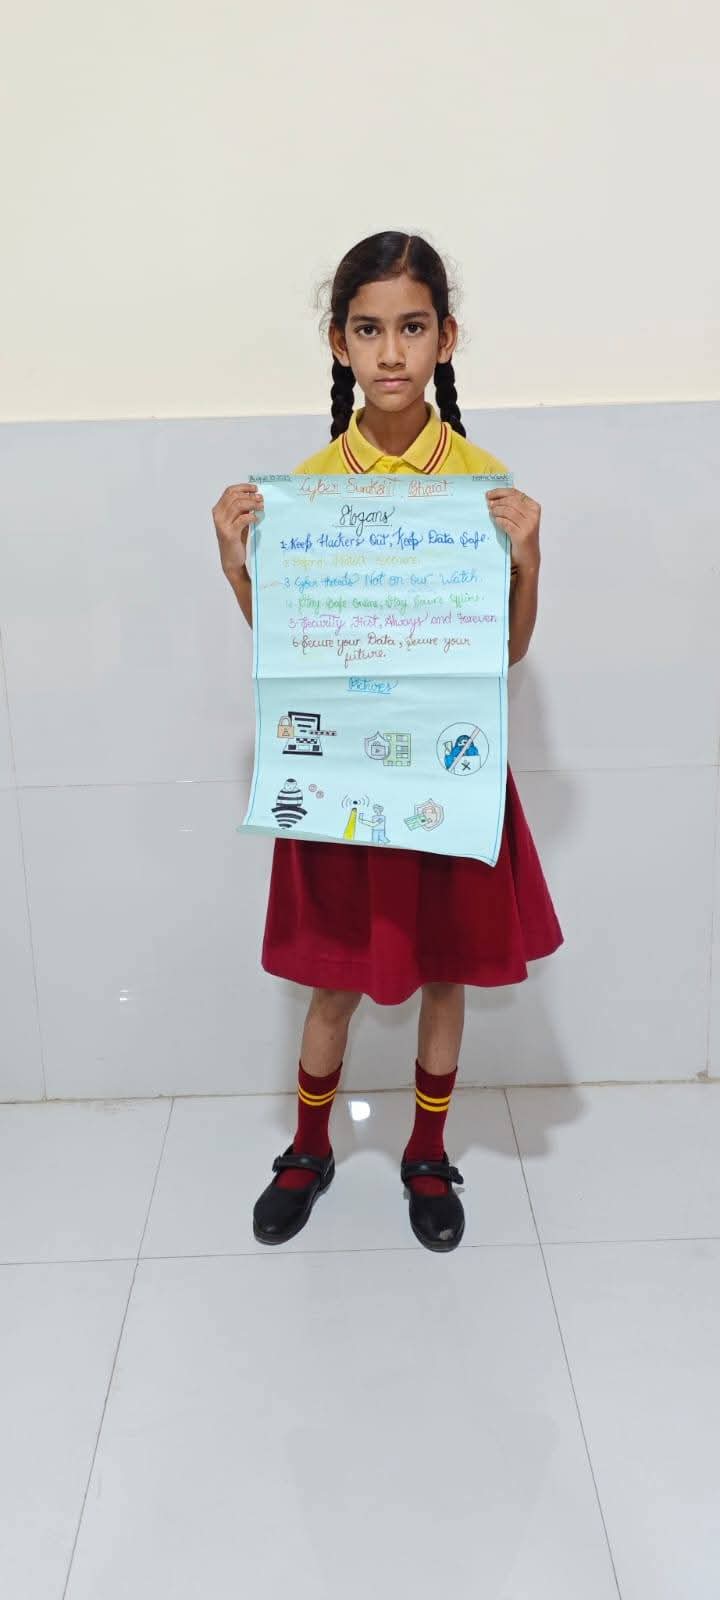 Cyber Surakshit Bharat
Slogans
1. Keep Hackers Out, Keep Data Safe.
2. Defend, Protect,
3. Cyber threats Not on Our Watch
4. Stay Safe Online, Stay Secure Offline.
5. Security First, Always and Forever.
6. Secure your Data, Secure your
future.
Pictures